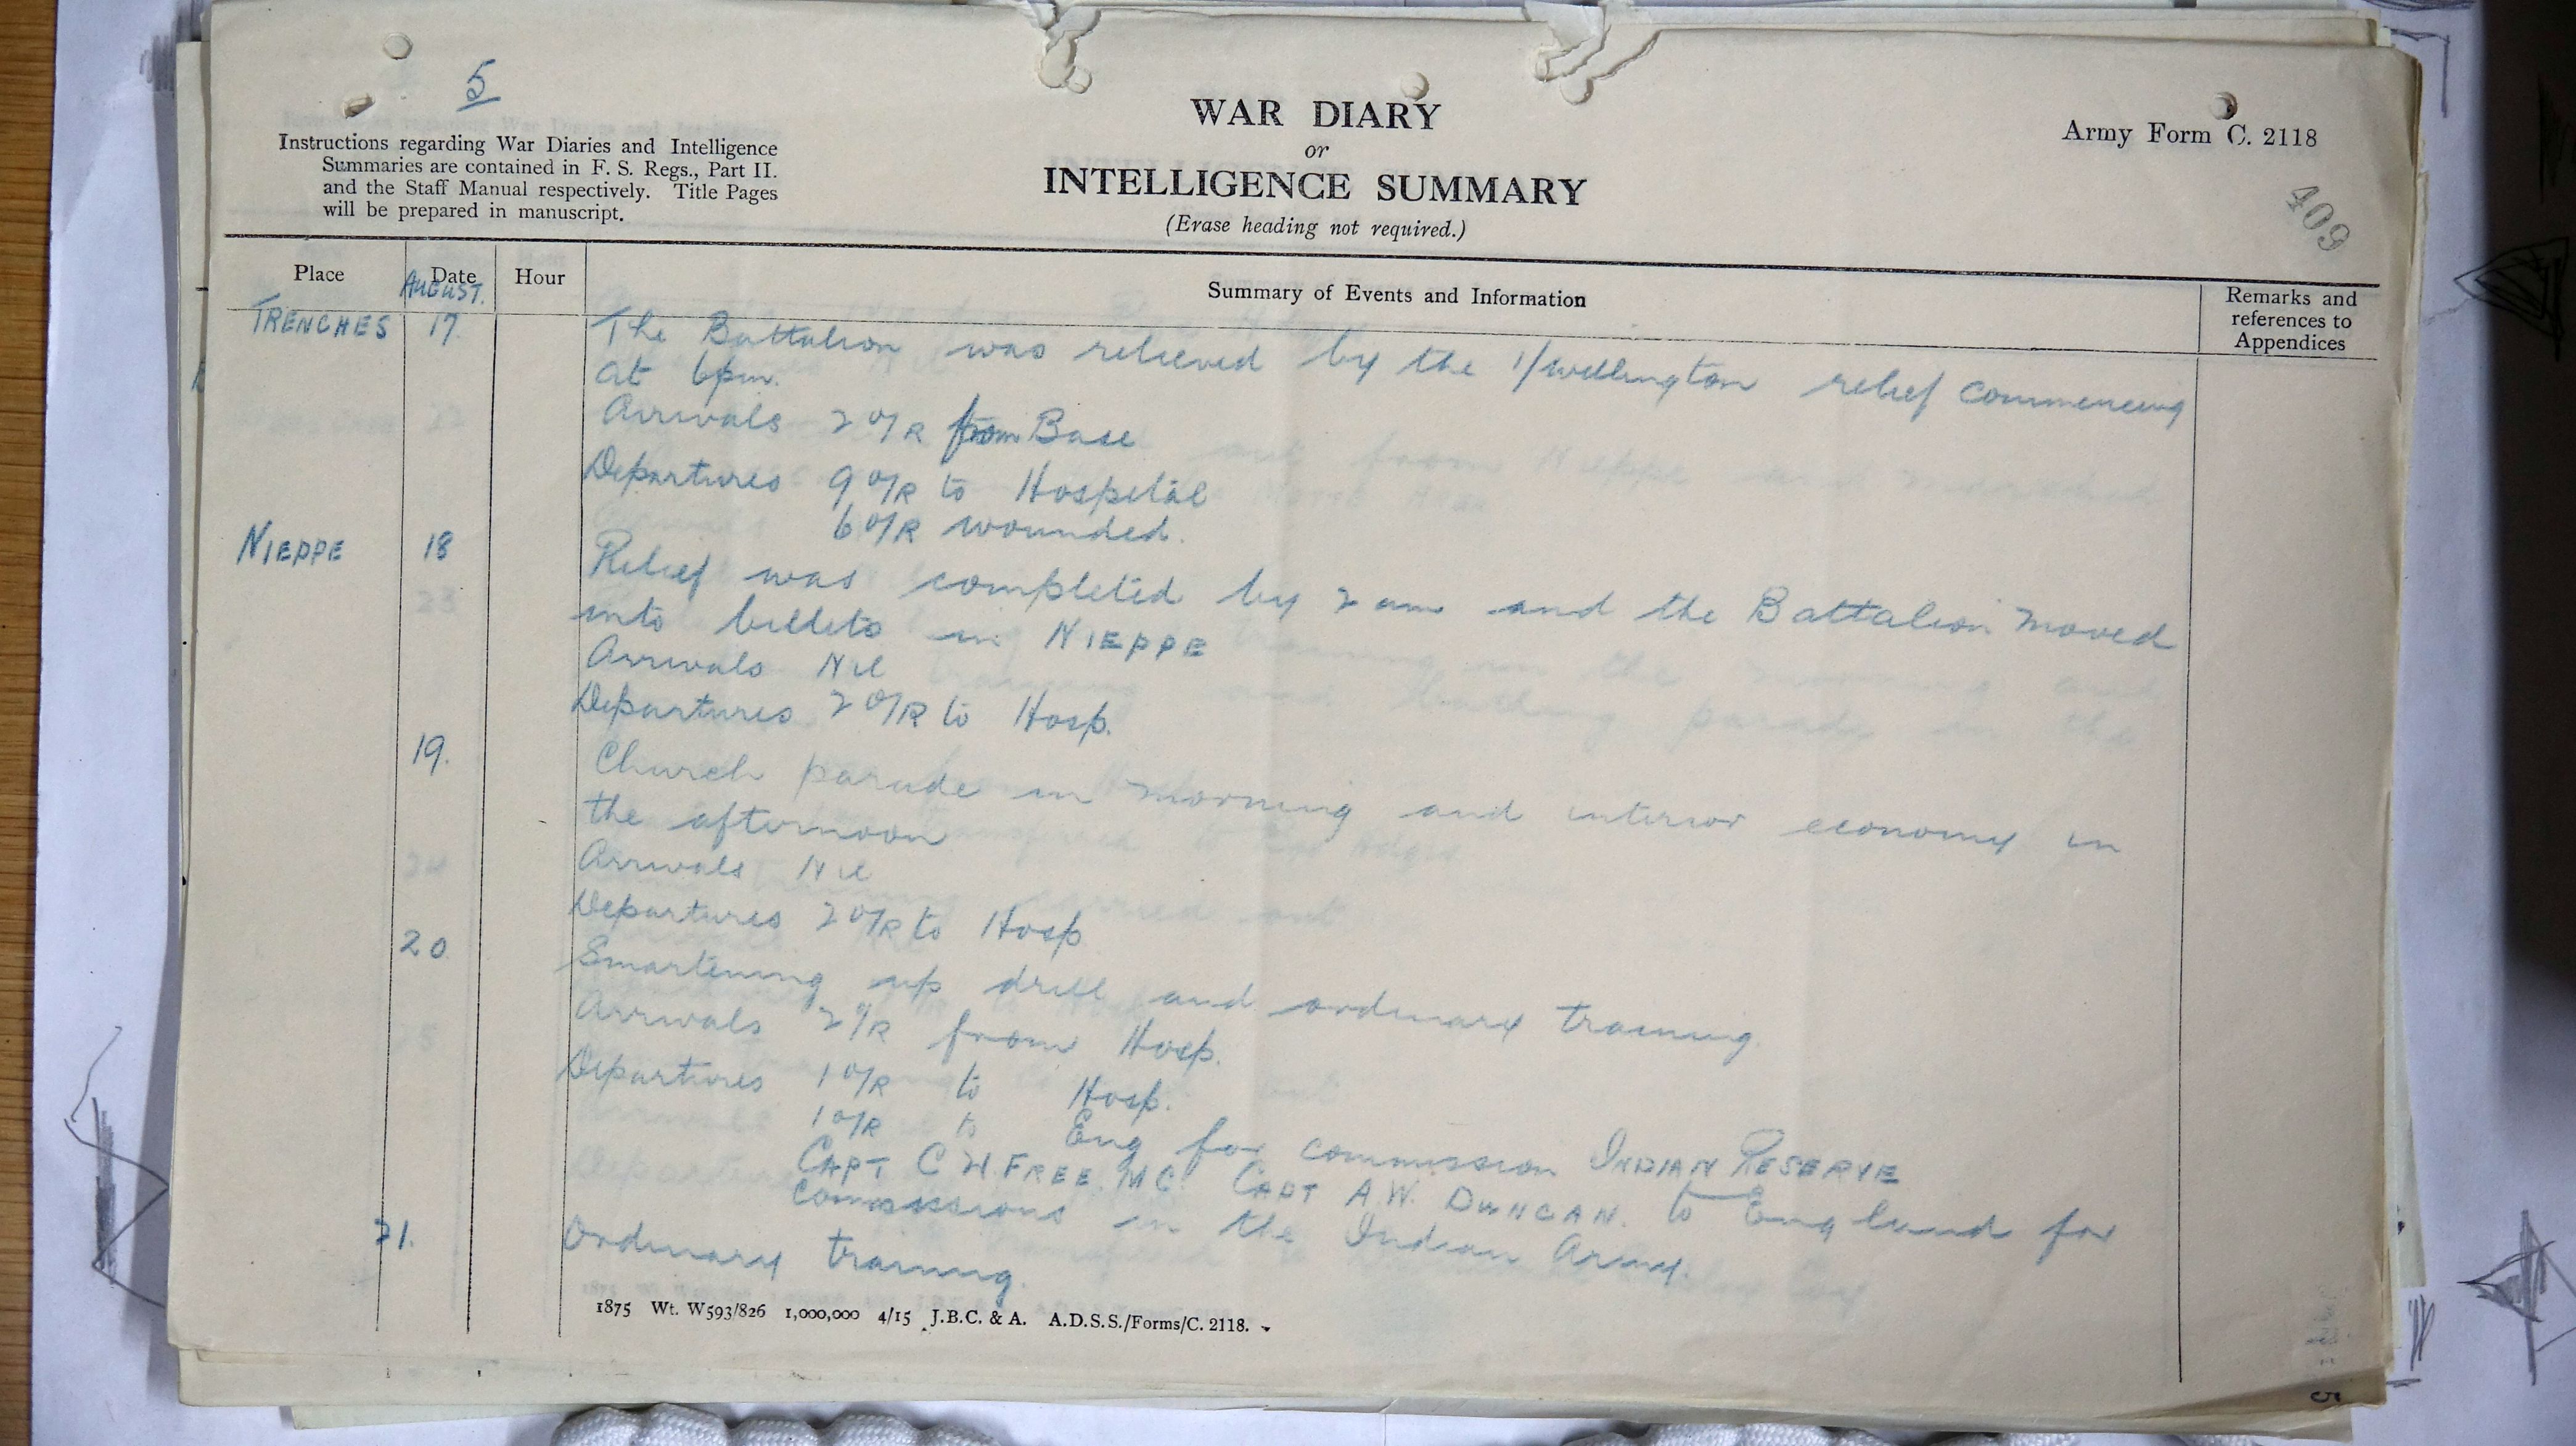 5
WAR DIARY
or
INTELLIGENCE SUMMARY
(Erase heading not required.)
Army Form C. 2118
409
Instructions regarding War Diaries and Intelligence
Summaries are contained in F. S. Regs., Part II.
and the Staff Manual respectively. Title Pages
will be prepared in manuscript.
Place Date Hour Summary of Events and Information Remarks and
references to
Appendices
AUGUST.
TRENCHES 17. The Battalion was relieved by the 1/Wellington relief commencing
at 6pm.
Arrivals 2 O/R from Base
Departures 9 O/R to Hospital
6 O/R wounded.
NIEPPE 18 Relief was completed by 2 am and the Battalion moved
into billets in NIEPPE
Arrivals Nil
Departures 2 O/R to Hosp.
19. Church parade in morning and interior economy in
the afternoon
Arrivals Nil
Departures 2 O/R to Hosp
20 Smartening up drill and ordinary training
Arrivals 2 O/R from Hosp.
Departures 1 O/R to Hosp.
1 O/R to Eng for commission INDIAN RESERVE
CAPT C H. FREE. MC. CAPT A.W. DUNCAN. to England for
commissions in the Indian Army.
21. Ordinary training.
1875 Wt. W593/826 1,000,000 4/15 J.B.C. & A. A.D.S.S./Forms/C. 2118.